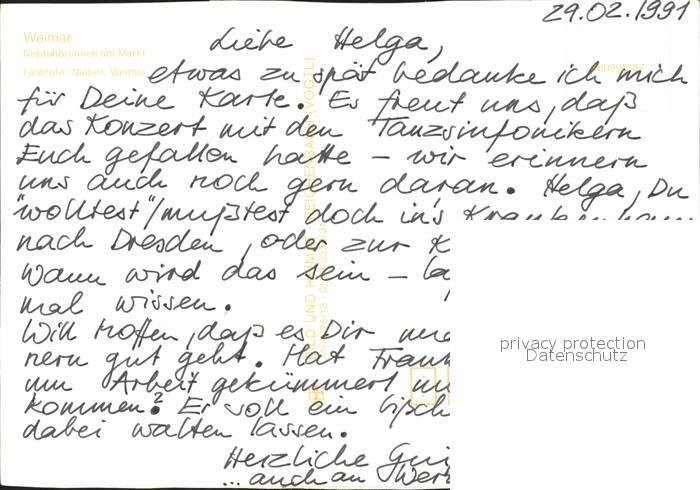 29.02.1991
Weimar
Neptunbrunnen am Markt
Farbfoto: Nieber, Weimar
Liebe Helga,
etwas zu spät bedanke ich mich
für Deine Karte. Es freut uns, daß
das Konzert mit den Tanzsinfonikern
Euch gefallen hatte – wir erinnern
uns auch noch gern daran. Helga, Du
"wolltest"/mußtest doch in's Krankenhaus
nach Dresden, oder zur K
Wann wird das sein – la
mal wissen.
Will hoffen, daß es Dir und
nern gut geht. Hat Frank
um Arbeit gekümmert
kommen? Er soll ein bißch
dabei walten lassen.
Herzliche
... auch an
privacy protection
Datenschutz